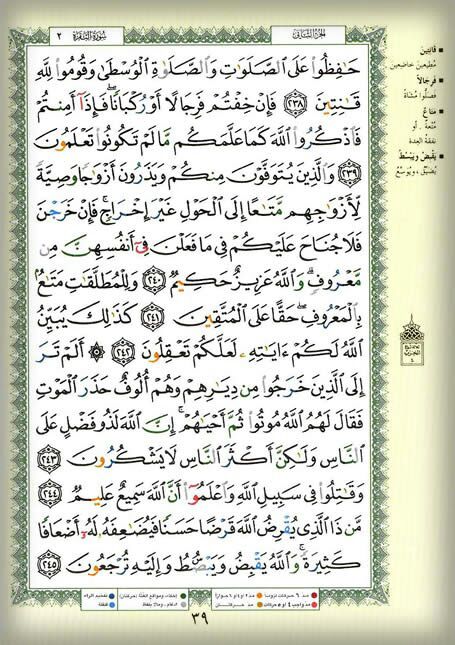 الجزء الثاني
سورة البقرة
٢
حَـٰفِظُوا۟ عَلَى ٱلصَّلَوَٰتِ وَٱلصَّلَوٰةِ ٱلْوُسْطَىٰ وَقُومُوا۟ لِلَّهِ
قَـٰنِتِينَ ﴿٢٣٨﴾ فَإِنْ خِفْتُمْ فَرِجَالًا أَوْ رُكْبَانًا ۖ فَإِذَآ أَمِنتُمْ
فَٱذْكُرُوا۟ ٱللَّهَ كَمَا عَلَّمَكُم مَّا لَمْ تَكُونُوا۟ تَعْلَمُونَ
﴿٢٣٩﴾ وَٱلَّذِينَ يُتَوَفَّوْنَ مِنكُمْ وَيَذَرُونَ أَزْوَٰجًا وَصِيَّةً
لِّأَزْوَٰجِهِم مَّتَـٰعًا إِلَى ٱلْحَوْلِ غَيْرَ إِخْرَاجٍ ۚ فَإِنْ خَرَجْنَ
فَلَا جُنَاحَ عَلَيْكُمْ فِى مَا فَعَلْنَ فِىٓ أَنفُسِهِنَّ مِن
مَّعْرُوفٍ ۗ وَٱللَّهُ عَزِيزٌ حَكِيمٌ ﴿٢٤٠﴾ وَلِلْمُطَلَّقَـٰتِ مَتَـٰعٌۢ
بِٱلْمَعْرُوفِ ۖ حَقًّا عَلَى ٱلْمُتَّقِينَ ﴿٢٤١﴾ كَذَٰلِكَ يُبَيِّنُ
ٱللَّهُ لَكُمْ ءَايَـٰتِهِۦ لَعَلَّكُمْ تَعْقِلُونَ ﴿٢٤٢﴾ ۞ أَلَمْ تَرَ
إِلَى ٱلَّذِينَ خَرَجُوا۟ مِن دِيَـٰرِهِمْ وَهُمْ أُلُوفٌ حَذَرَ ٱلْمَوْتِ
فَقَالَ لَهُمُ ٱللَّهُ مُوتُوا۟ ثُمَّ أَحْيَـٰهُمْ ۚ إِنَّ ٱللَّهَ لَذُو فَضْلٍ عَلَى
ٱلنَّاسِ وَلَـٰكِنَّ أَكْثَرَ ٱلنَّاسِ لَا يَشْكُرُونَ ﴿٢٤٣﴾
وَقَـٰتِلُوا۟ فِى سَبِيلِ ٱللَّهِ وَٱعْلَمُوٓا۟ أَنَّ ٱللَّهَ سَمِيعٌ عَلِيمٌ ﴿٢٤٤﴾
مَّن ذَا ٱلَّذِى يُقْرِضُ ٱللَّهَ قَرْضًا حَسَنًا فَيُضَـٰعِفَهُۥ لَهُۥٓ أَضْعَافًا
كَثِيرَةً ۚ وَٱللَّهُ يَقْبِضُ وَيَبْصُۜطُ وَإِلَيْهِ تُرْجَعُونَ ﴿٢٤٥﴾
■ قانتين
مطيعين خاضعين
■ فرجالاً
فصلوا مشاة
■ متاع
متعة . أو
نفقة العدة
■ يقبض ويبسط
يضيق ، ويوسع
مد ٦ حركات لزوماً
مد ٢ او ٤ او ٦ جوازاً
مد واجب ٤ او ٥ حركات
مد حركتان
إخفاء، ومواقع الغنة (حركتان)
ادغام ، وما لا يلفظ
تفخيم الراء
قلقلة
٣٩